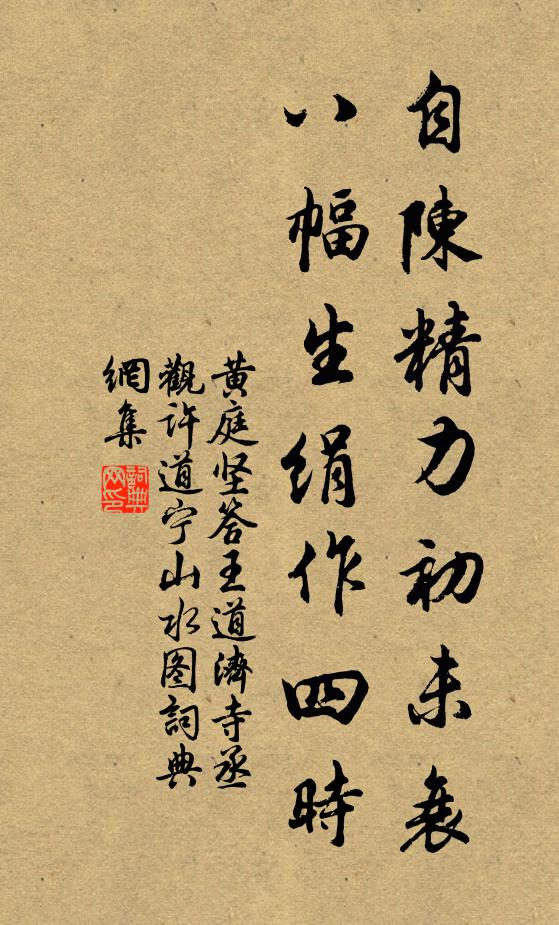 自陳精力初未衰
八幅生絹作四時
黄庭坚答王道濟寺丞
觀许道宁山水图詞典
網集
詞典
网印